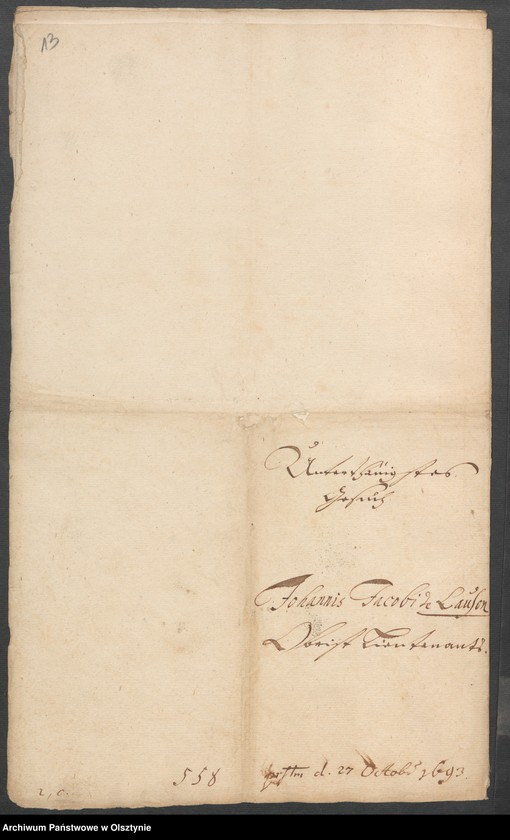 13
Unterthänigstes
Gesuch
Johannis Jacobi de Lauson
Obrist Lieutenants.
558
d. 27 Octobr 1693.
Archiwum Państwowe w Olsztynie